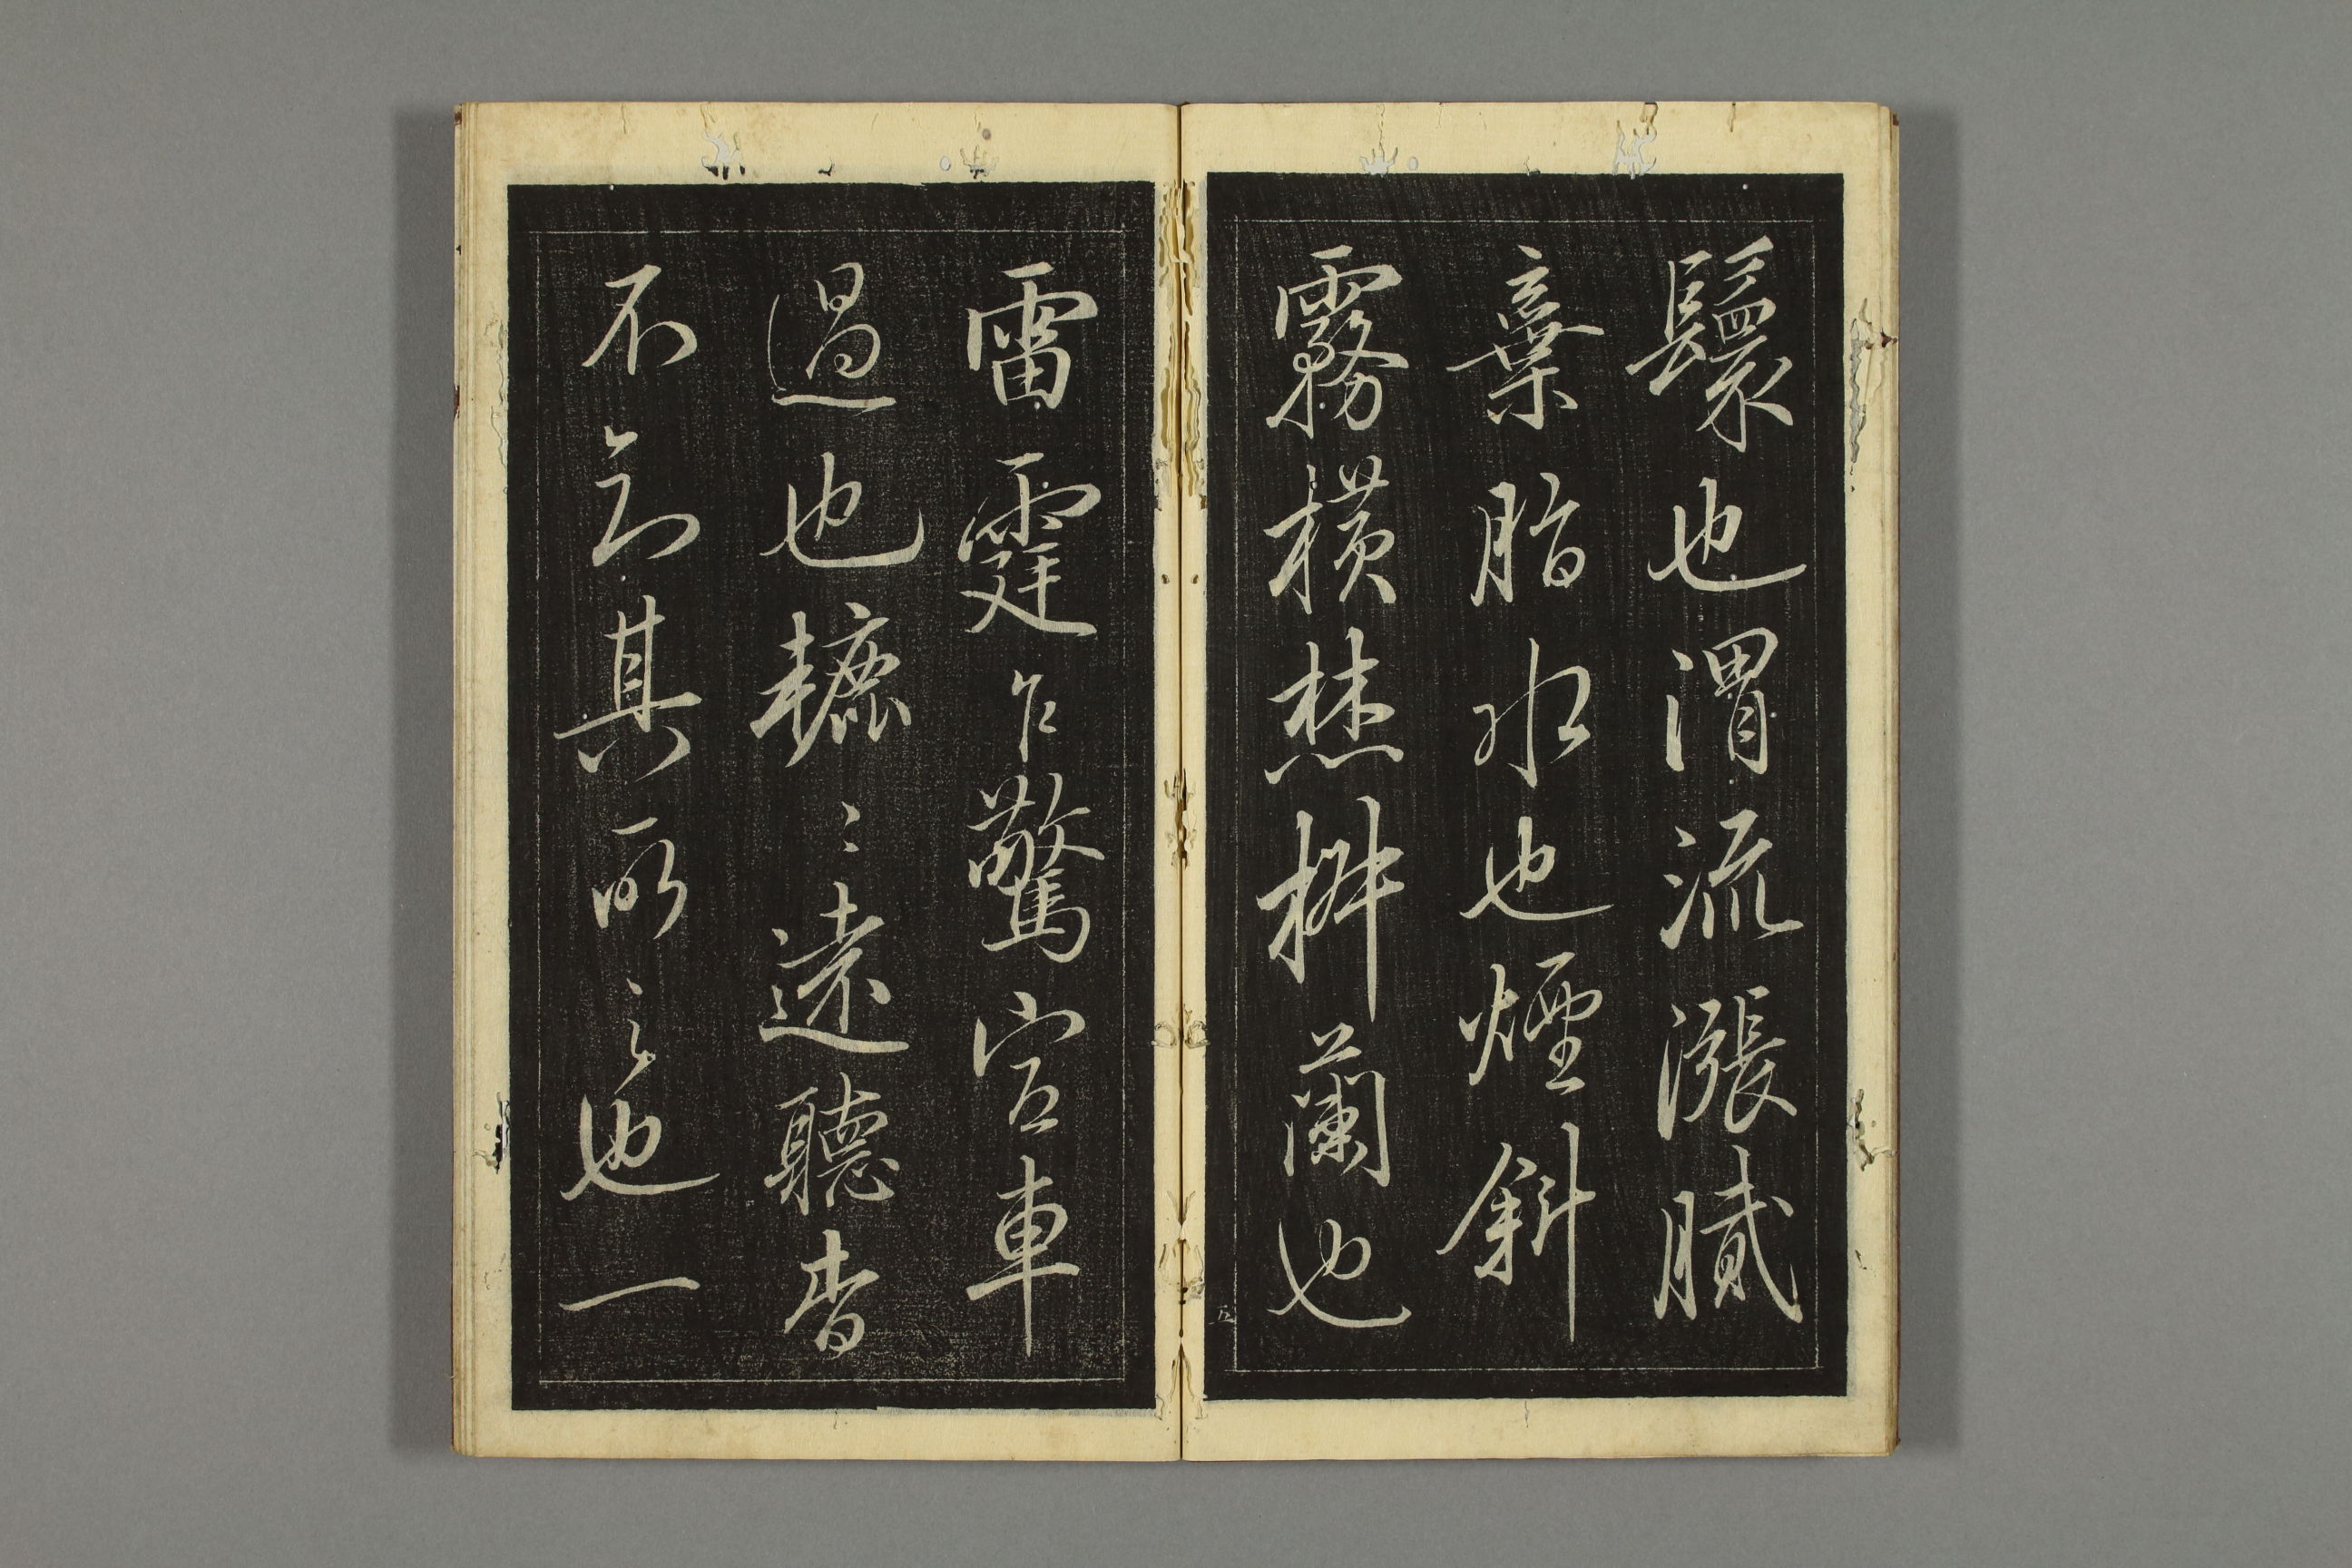 鬟也渭流漲膩
棄脂水也煙斜
霧橫焚椒蘭也
雷霆乍驚宮車
過也轆〻遠聽杳
不知其所之也一
五